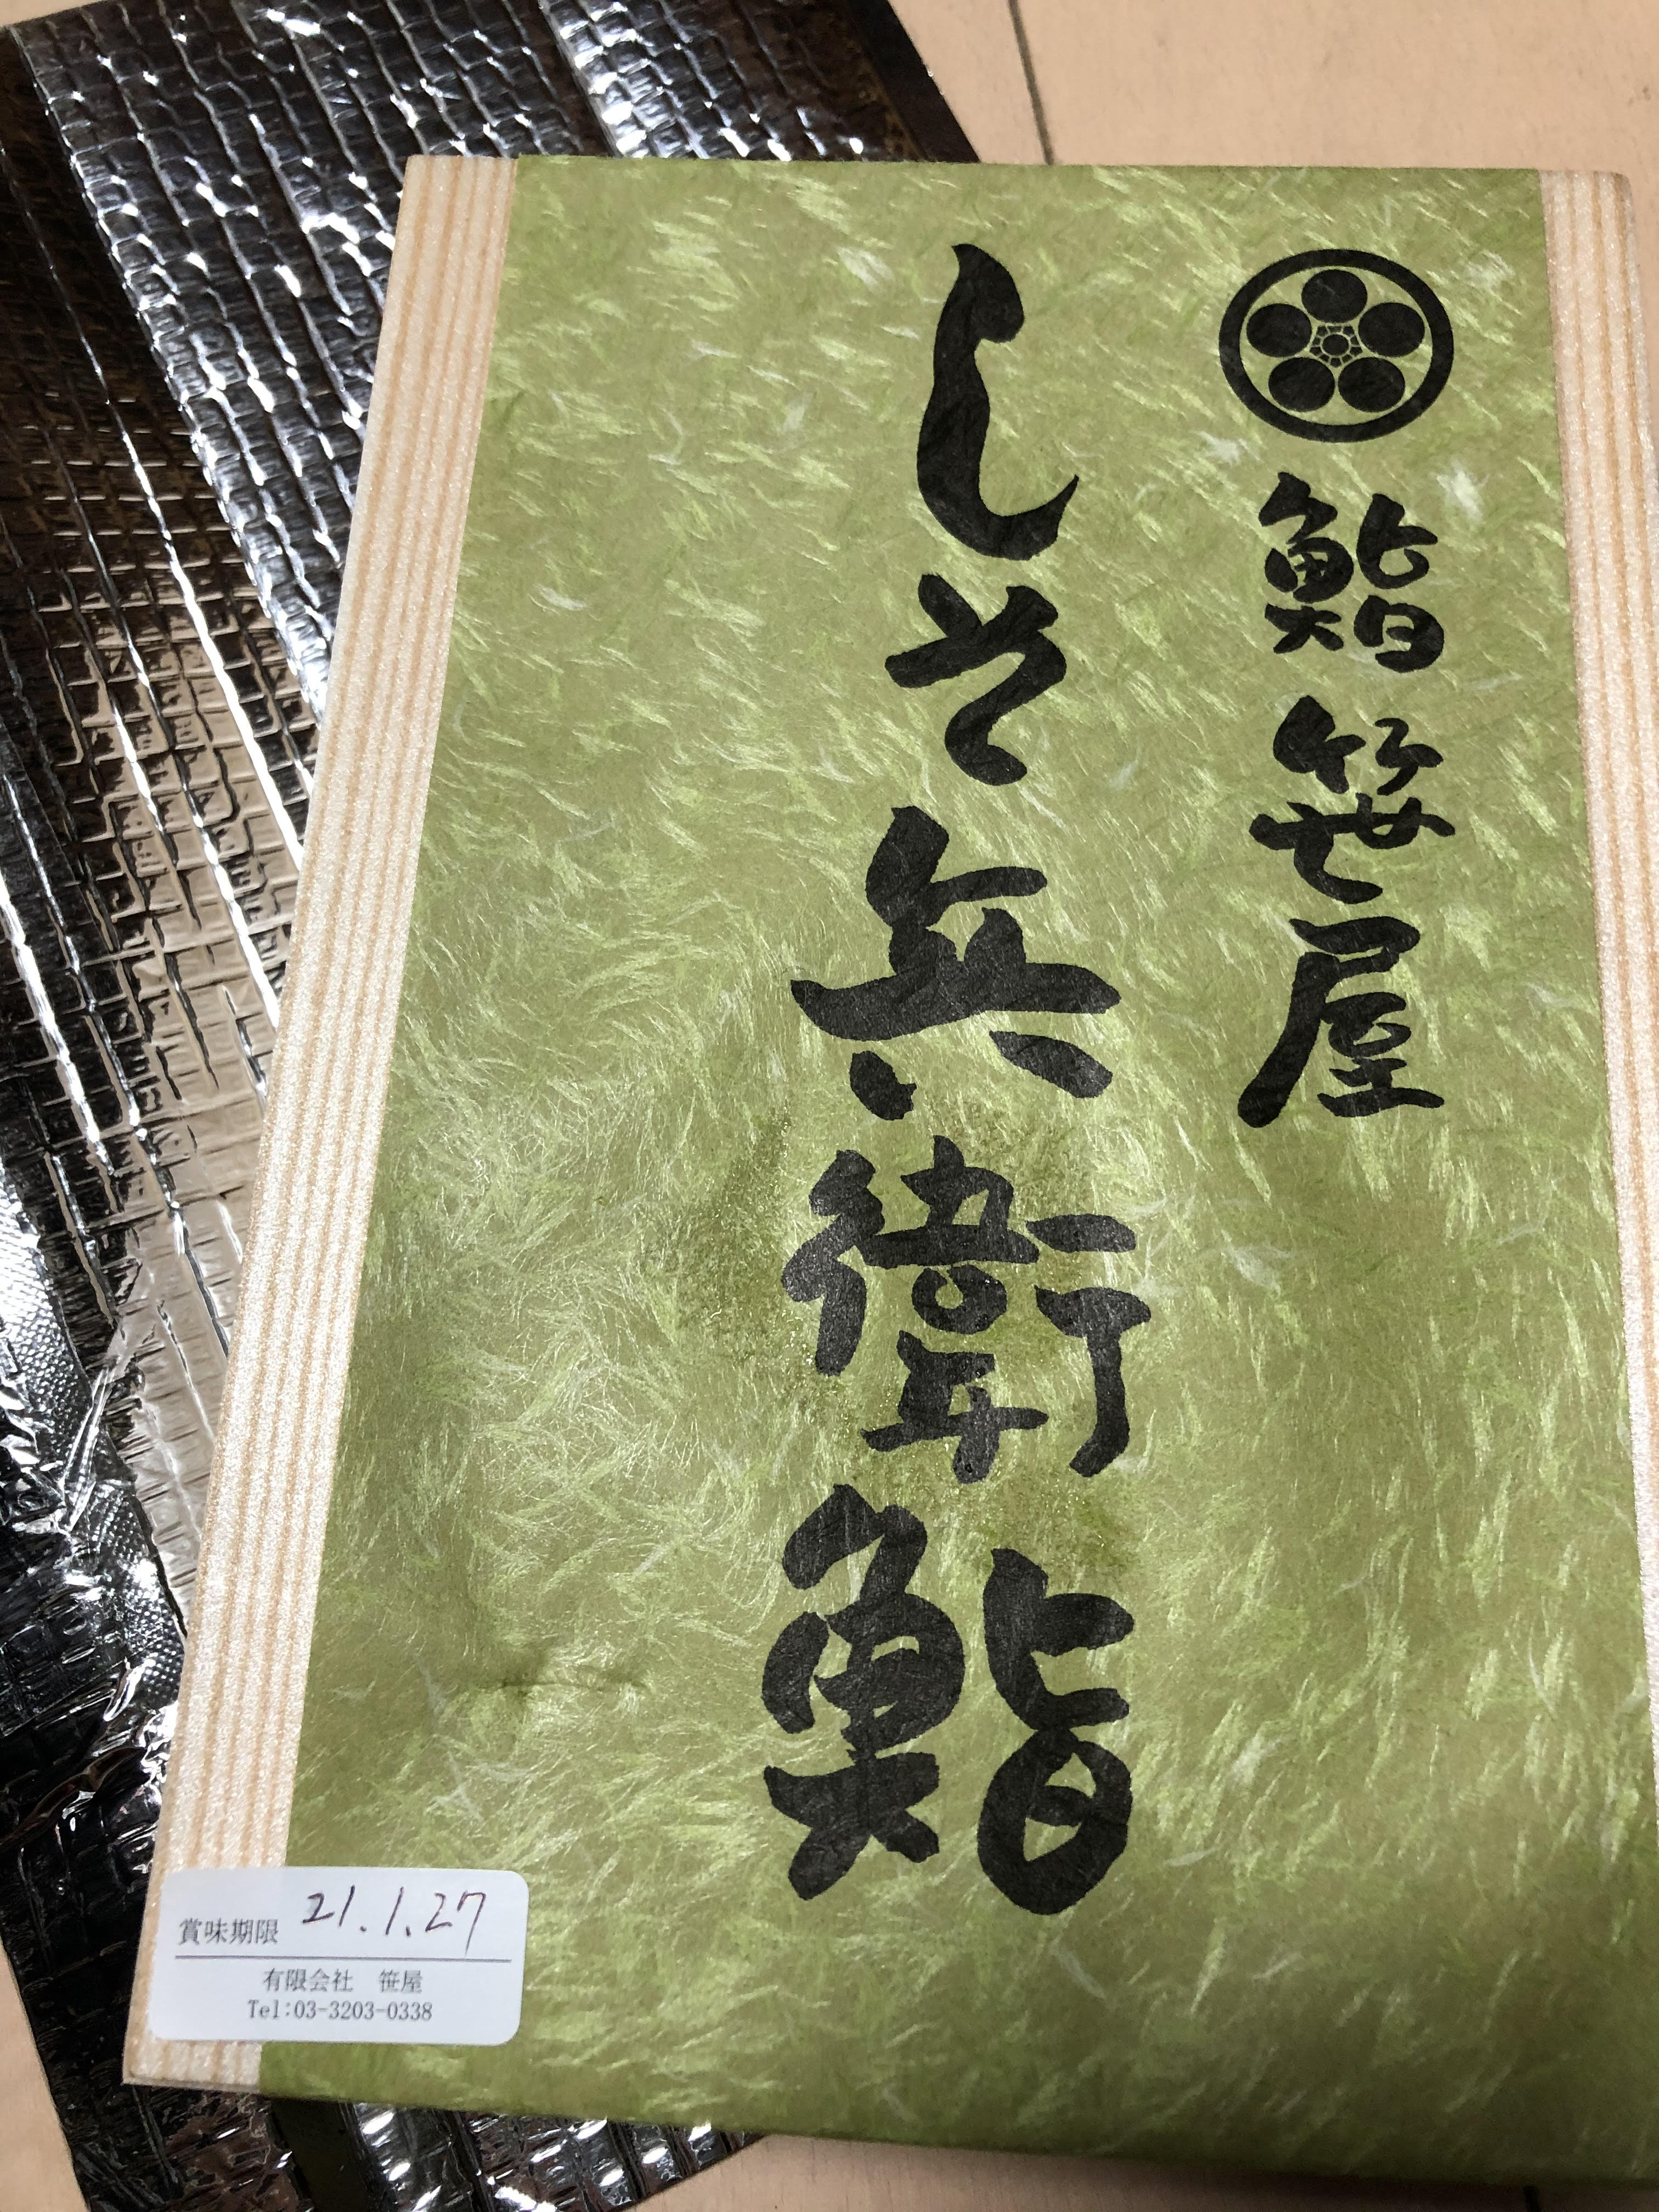 鮨笹屋
しそ兵衛鮨
賞味期限 21.1.27
有限会社 笹屋
Tel:03-3203-0338